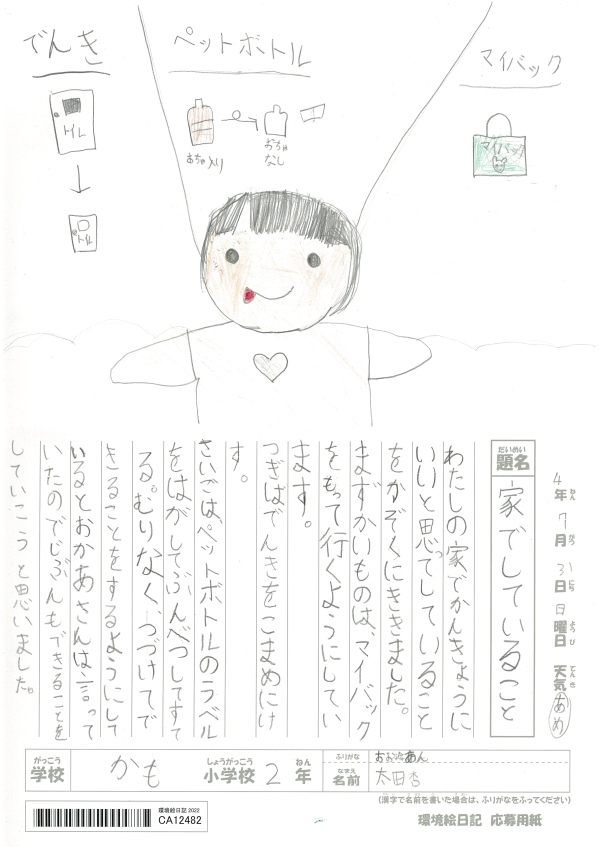 でんき
ペットボトル
マイバック
トイレ
トイレ
おちゃ入り
おちゃ
なし
マイバック
4年7月31日日曜日 天気 あめ
ねん がつ にち ようび てんき
だいめい
題名
家でしていること
わたしの家でかんきょうに
いいと思ってしていること
をかぞくにききました。
まずかいものは、マイバック
をもって行くようにしてい
ます。
つぎはでんきをこまめにけ
す。
さいごは、ペットボトルのラベル
をはがしてぶんべつしてすて
る。むりなく、つづけてで
きることをするようにして
いるとおかあさんは言って
いたのでじぶんもできることを
していこうと思いました。
がっこう
学校
かも
しょうがっこう
小学校
2
ねん
年
ふりがな
おおたあん
なまえ
名前
太田杏
(漢字で名前を書いた場合は、ふりがなをふってください)
環境絵日記 2022
CA12482
環境絵日記 応募用紙